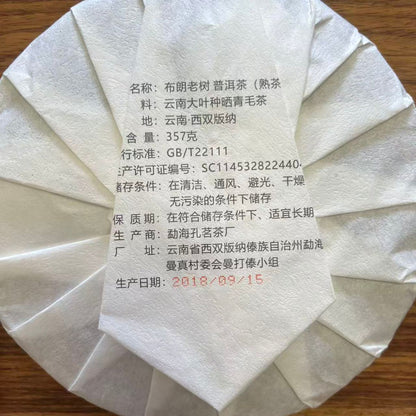 名称：布朗老树 普洱茶（熟茶
料：云南大叶种晒青毛茶
地：云南·西双版纳
含 量：357克
行标准：GB/T22111
生产许可证编号：SC114532822440
储存条件：在清洁、通风、避光、干燥
无污染的条件下储存
保 质 期：在符合储存条件下、适宜长期
生 产 商：勐海孔茗茶厂
厂 址：云南省西双版纳傣族自治州勐海
曼真村委会曼打傣小组
生产日期：2018/09/15